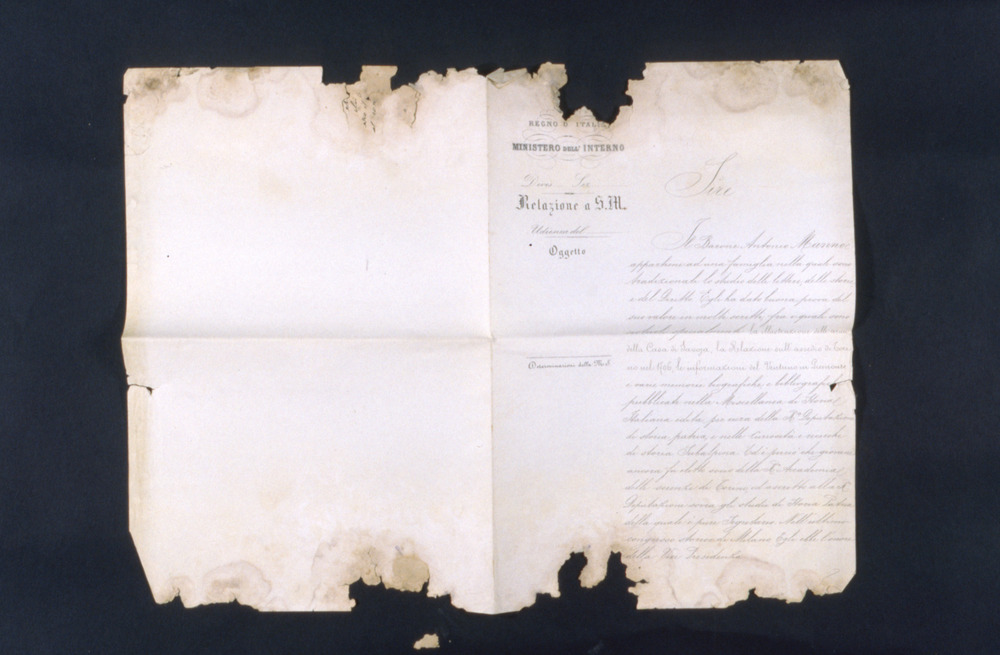 REGNO D'ITALIA
MINISTERO DELL' INTERNO
Divis Sez
Relazione a S.M.
Udienza del
Oggetto
Determinazione della M.S.
Sire
Il Barone Antonio Manno
appartiene ad una famiglia nella quale sono
tradizionali lo studio delle lettere, della storia
e del Diritto. Egli ha dato buona prova del
suo valore in molti scritti, fra i quali sono
della Casa di Savoja, la Relazione sull'assedio di Tori-
no nel 1706, le informazioni sul Ventuno in Piemonte
e varie memorie biografiche e bibliografiche
pubblicate nella Miscellanea di Storia
Italiana edita per cura della Rª Deputazione
di storia patria, e nelle Curiosità e ricerche
di storia Subalpina. Ed è perciò che giovane
ancora fu eletto socio della Rª Accademia
delle scienze di Torino, ed ascritto alla Rª
Deputazione sovra gli studi di Storia Patria
della quale è pure Segretario. Nell'ultimo
congresso storico di Milano Egli ebbe l'onore
della Vice Presidenza